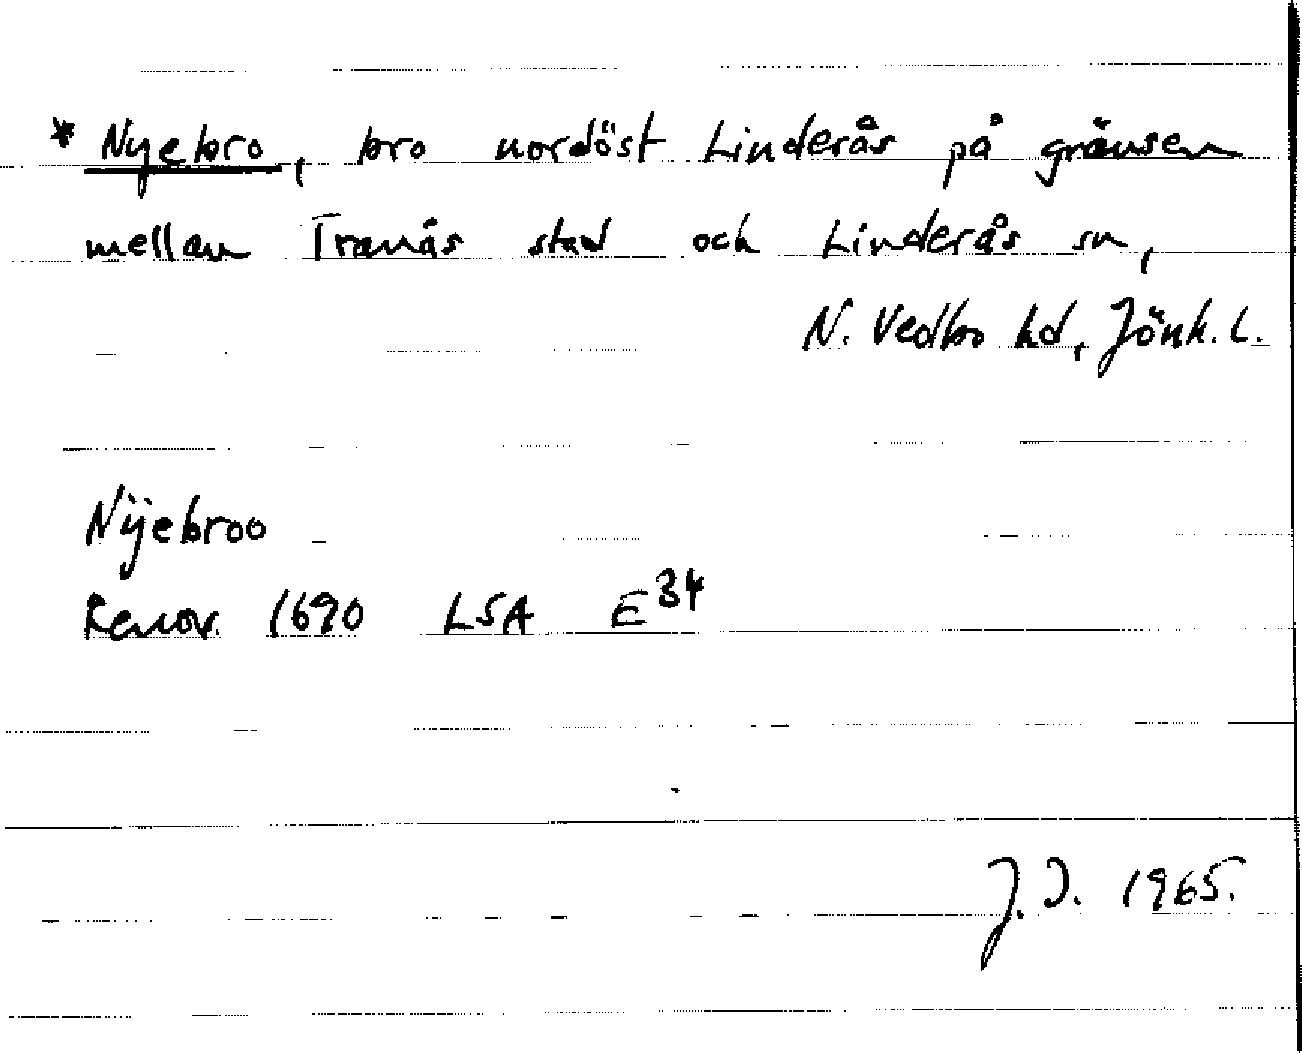 * Nyebro, bro nordöst Linderås på gränsen
mellan Tranås stad och Linderås sn,
N. Vedbo hd, Jönk. L.
Nÿebroo
Renov. 1690 LSA E34
J. D. 1965.